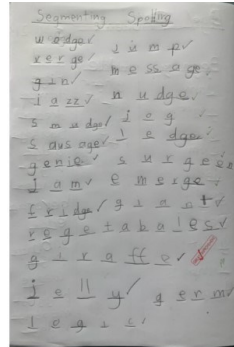 Segmenting Spelling
wedge jump
verge message
gin
jazz nudge
smudge jog
sausage ledge
genie surgeon
jam emerge
fridge giant
vegetables
giraffe
jelly germ